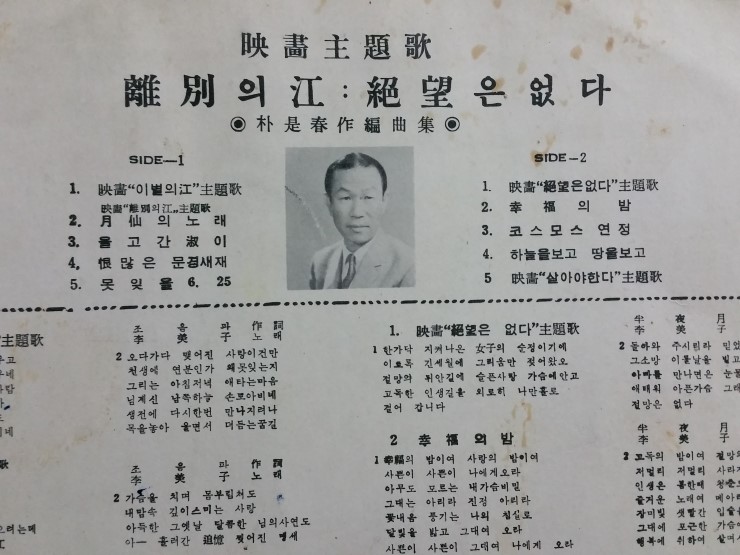 映畵主題歌
離別의江:絕望은없다
◉朴是春作編曲集◉
SIDE—1
1. 映畵"이별의江"主題歌
映畵"離別의江„主題歌
2. 月仙의노래
3. 울고간淑이
4. 恨많은문경새재
5. 못잊을6.25
SIDE—2
1. 映畵"絕望은없다"主題歌
2. 幸福의밤
3. 코스모스연정
4. 하늘을보고 땅을보고
5 映畵"살아야한다"主題歌
主題歌
조음파作詞
李美子노래
2 오다가다 맺어진 사랑이건만
천생에 연분인가 왜못잊는지
그리는 아침저녁 애타는마음
님계신 남쪽하늘 손모아비네
생전에 다시한번 만나지려나
목을놓아 울면서 더듬는꿈길
조음파作詞
李美子노래
2 가슴을 치며 몸부림쳐도
내맘속 깊이스미는 사랑
아득한 그옛날 달콤한 님의사연도
아— 흘러간 追憶 맺어진 맹세
1. 映畵"絕望은 없다"主題歌
1 한가닥 지켜나온 女子의 순정이기에
이토록 긴세월에 그리움만 젖어왔오
절망의 뒤안길에 슬픈사람 가슴에안고
고독한 인생길을 외로히 나만홀로
걸어 갑니다
2 幸福의밤
1 幸福의 밤이여 사랑의 밤이여
사쁜이 사쁜이 나에게오라
아무도 모르는 내가슴비밀
그대는 아리라 진정 아리라
꽃내음 풍기는 나의 침실로
달빛을 밟고 그대여 오라
사쁜이 사쁜이 그대여 나에게 오라
半夜月
李美子
2 돌아와 주시린라 믿었
그소망 이룰날을 빌고
아빠를 만나면은 눈물
애태워 아픈가슴 그대
절망은 없다
半夜月
李美子
2 고독의 밤이여 절망의
저멀리 저멀리 사라지
인생은 봄한때 청춘도
즐거운 노래여 메아리
장미빛 샛빨간 입술을
그대에 포근한 가슴에
행복에 취하여